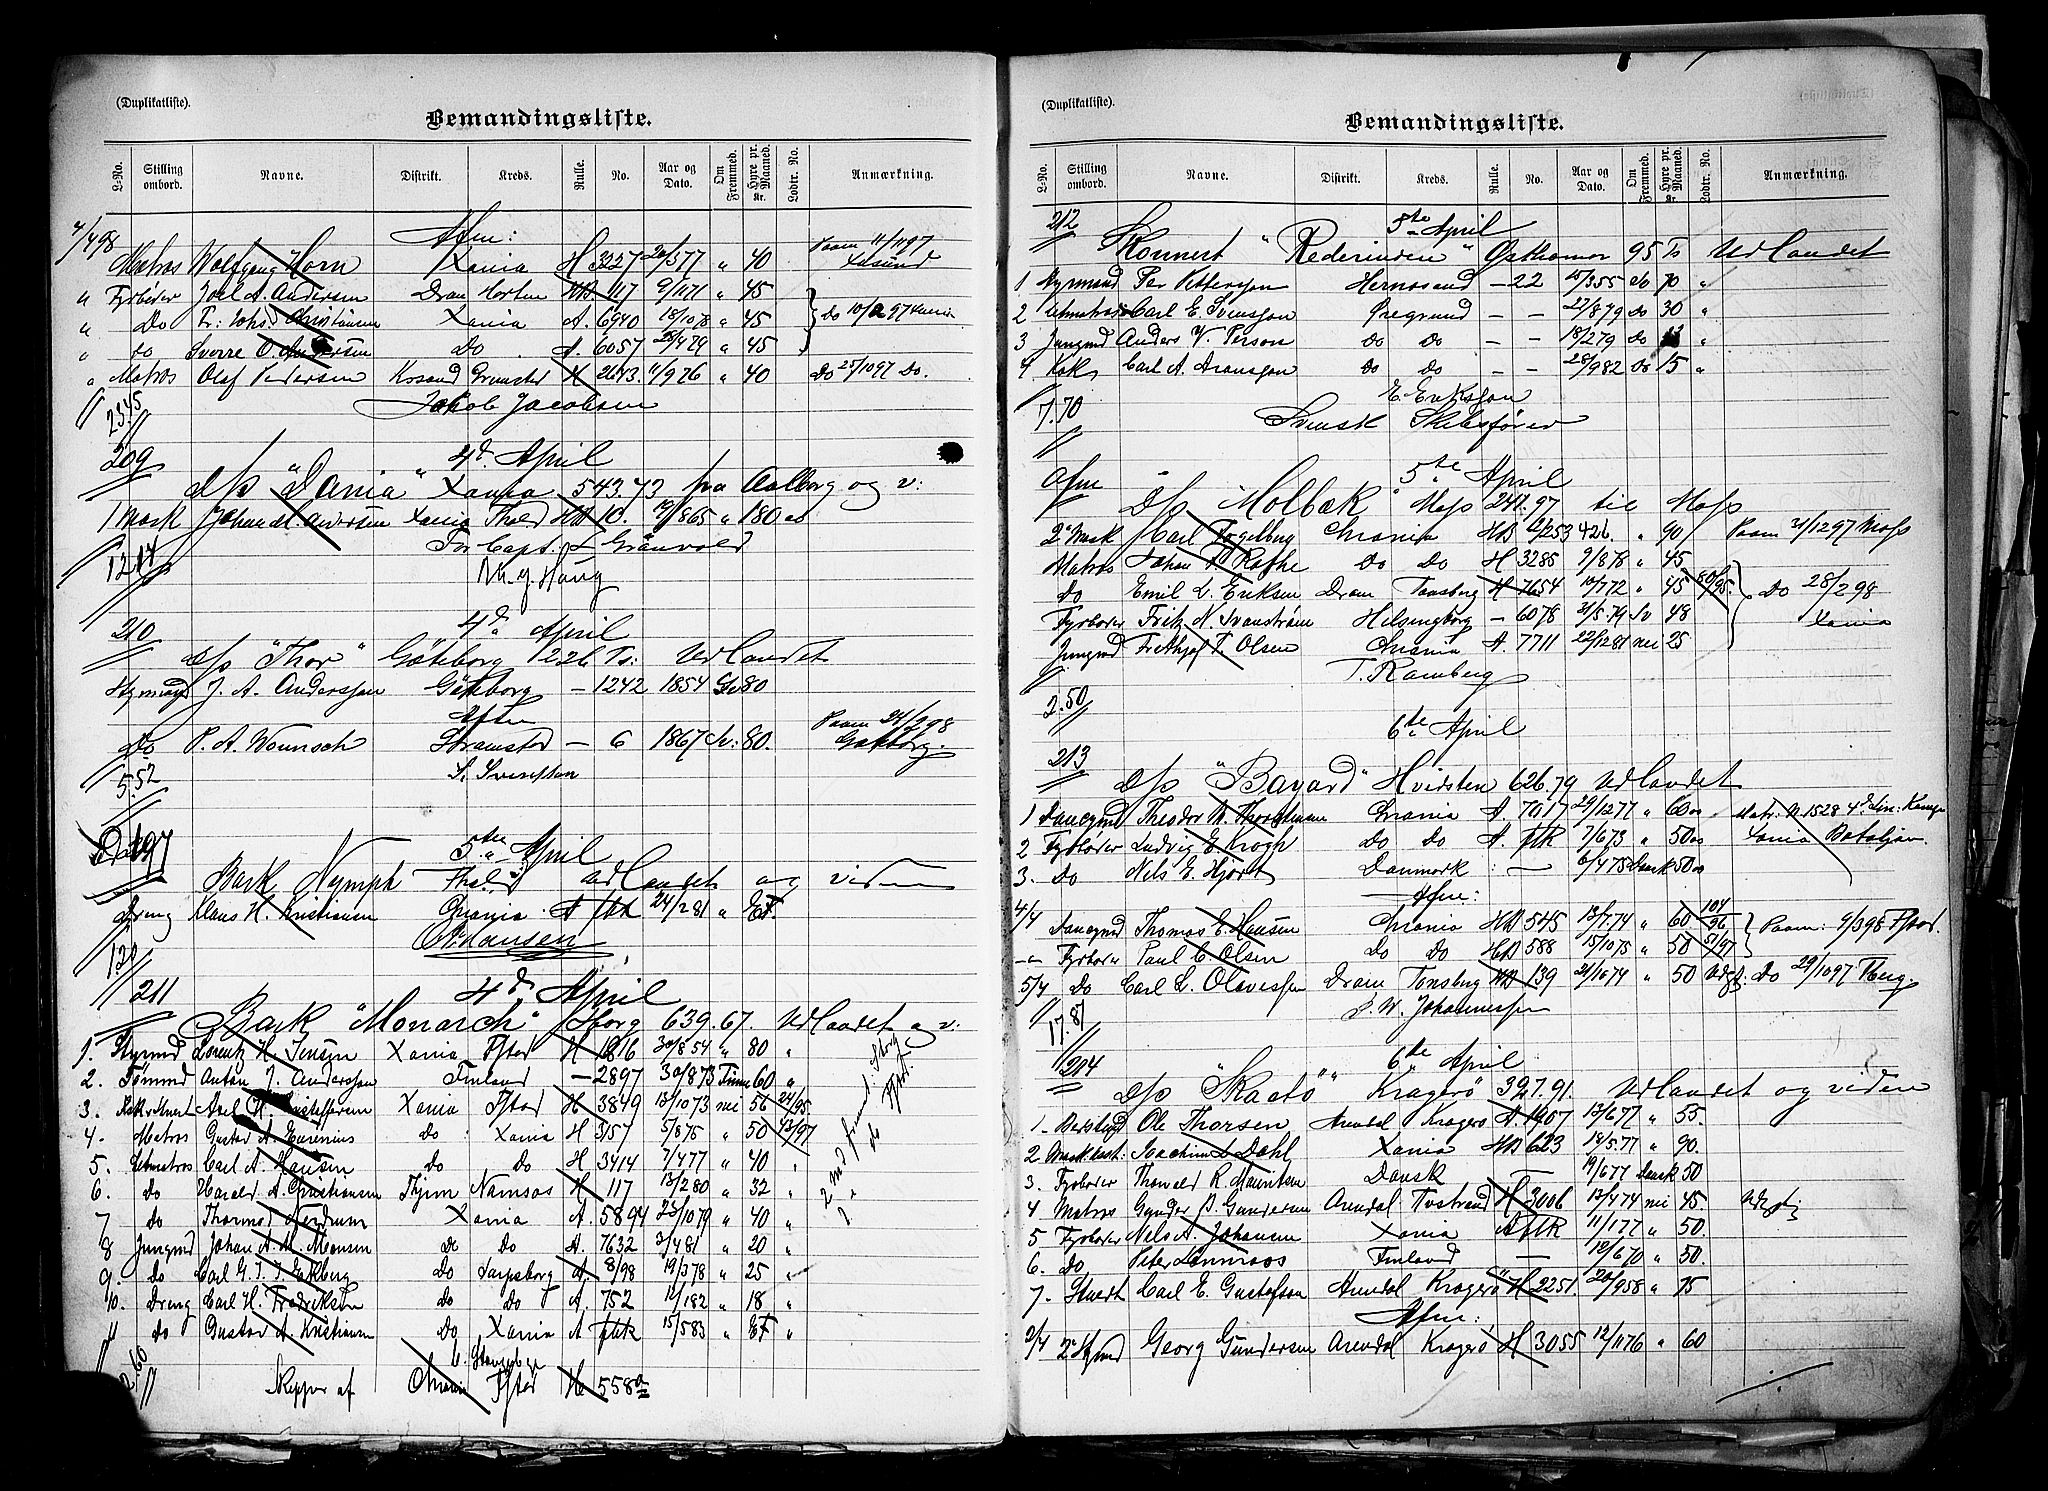 (Duplikatliste).
Bemandingsliste.
L-No. Stilling ombord. Navne. Distrikt. Kreds. Rulle. No. Aar og Dato. Om Fremmed. Hyre pr. Maaned. Kr. Lodtr. No. Anmærkning.
Afm:
Matros Wolfgang Horn Xania H 3227 " 40 Paam 11/1197
" Fyrbøder Joel A. Andersen Dram Horten HB 117 9/1171 " 45
" Do Fr: Johs Christiansen Xania A. 6940 18/1078 " 45 Do
" do Sverre O. Andersen Do A. 6057 25/479 " 45
" Matros Olaf Pedersen Krsand Grimstad H 2613 11/976 " 40 Do 25/1097 Do.
Jakob Jacobsen
23.45
209
4d. April
d/s "Dania" Xania 543.73 fra Aalborg og v:
1 Mask Johan M. Andersen Xania HB 10. 19/865 " 180
For Capt. L Grönvold
M. G. Haug
12.14
210
4d. April
d/s "Thor" Göteborg 1226 Ts: Udlandet
Styrmand J. A. Andersson Göteborg – 1242 1854 Sv 80
Afm
Do P. A. Wounsch Strømstad – 6 1867 80. Paam 24/298
Göteborg.
5.52
5te April
Bark Nymph udlandet og videre
Dreng Klaus H. Kristiansen Chrania A ftk 24/281 "
O. Hansen
1.20
211
4d. April
Bark "Monarch" Hborg 639.67. Udlandet og v:
1. Styrmd Lorentz H. Jensen Xania Fstad H 1816 30/854 " 80 "
2. Tømmd Anton J. Andersson Finland – 2897 30/873 Finn 60 "
3. Kok & Stuert Axel H. Kristoffersen Xania Fstad H 3849 13/1073 nei 56 24/95
4. Matros Gustav A. Do Xania H 3157 5/875 " 50 43/97
5. Letmatros Carl A. Hansen do Do H 3414 7/477 " 40 "
6. Do Harald A. Christiansen Thjem Namsos H 117 13/280 " 32 "
7 do Thormod Nordrum Xania A. 5894 23/1079 " 40 "
8 Jungmd Johan A. M. Monsen Do Do A. 7632 3/481 " 20 "
9. do Carl G. J. J. Ekberg Do Sarpsborg A 8/98 19/378 " 25 "
10. Dreng Carl H. Fredriksen do Do A. 752 12/182 " 18 "
11 do Gustav A. Kristiansen Do Xania A ftk 15/583 " "
Skipper af Chrania Fstad H 558
(Duplikatliste).
Bemandingsliste.
L-No. Stilling ombord. Navne. Distrikt. Kreds. Rulle. No. Aar og Dato. Om Fremmed. Hyre pr. Maaned. Kr. Lodtr. No. Anmærkning.
212
5te April
Skonnert "Rederinden" Östhamar 95 Ts Udlandet
1 Styrmand Per Pettersson Hernøsand – 22 15/355 do 70 "
2 Letmatros Carl E. Svensson Öregrund – – 27/879 Do 30 "
3 Jungmd Anders V. Person Do Do – – 18/279 Do "
4 Kok Carl A. Aronsson Do do – – 28/982 Do 15 "
E. Eriksson
Svensk Skibsfører
7.70
Afm
5te April
D/s "Molbæk" Moss 241.97 til Moss
2d Mask Carl Fogelberg Chrania HB " 90 Paam 31/1297 Moss
Matros Johan Do Do H 3285 9/878 " 45
Do Emil L. Eriksen Dram Tønsberg H 7654 10/772 " 45 80/95. Do 28/298
Fyrbøder Fritz N. Svanstrøm Helsingborg – 6078 21/5.79 Sv 48 Xania
Jungmd Frithjof T. Olsen Chrania A. 7711 22/1281 nei 25
T. Ramberg
2.50
6te April
213
d/s "Bayard" Hvidsten 626.79 Udlandet
1 Donkymd Theodor M. Thorstensen Chrania A. 29/1277 " 60 00 Matr: N. 1528 4d Lin: Komp
2 Fyrbøder Ludvig E. Krogh Do Do A. ftk 7/673 " 50 00 Xania Bataljon
3. Do Nels E. Hjort Danmark – 6/475 Dansk 50 00
Afm:
4/4 Donkymd Thomas E. Hansen Chrania HB 545 13/7.74 " 60 104/96 Paam: 9/398 Fstad.
–"– Fyrbøder Paul C. Olsen Do Do HB 588 15/1075 " 50 51/97
5/4 Do Carl L. Olavessen Dram Tønsberg HB 139 21/1074 " 50 Udgj: Do 29/1097 Tberg
P. W. Johannessen
17.87
214
6te April
d/s "Skaatø" Kragerø 327.91. Udlandet og videre
1. Bestmd Ole Thorsen Arendal Kragerø A. 1907 13/677 " 55
2 Maskinist: Joachim L Dahl Xania HB 623 19/5.77 " 90.
3. Fyrbøder Thorvald R. Mauritsen Dansk 19/677 Dansk 50
4 Matros Gunder P. Gundersen Arendal Tvstrand H 3006 13/474 nei 45. Udgj
5 Fyrbøder Nels A. Johansen Xania A ftk 11/177 " 50.
6. Do Peter Lönnroos Finland – 10/670 " 50.
7. Stuert Carl E. Gustafson Arendal Kragerø H 2251 20/958 " 75
Afm:
2/4 2d Styrmd Georg Gundersen Arendal Kragerø H 3055 12/1176 " 60